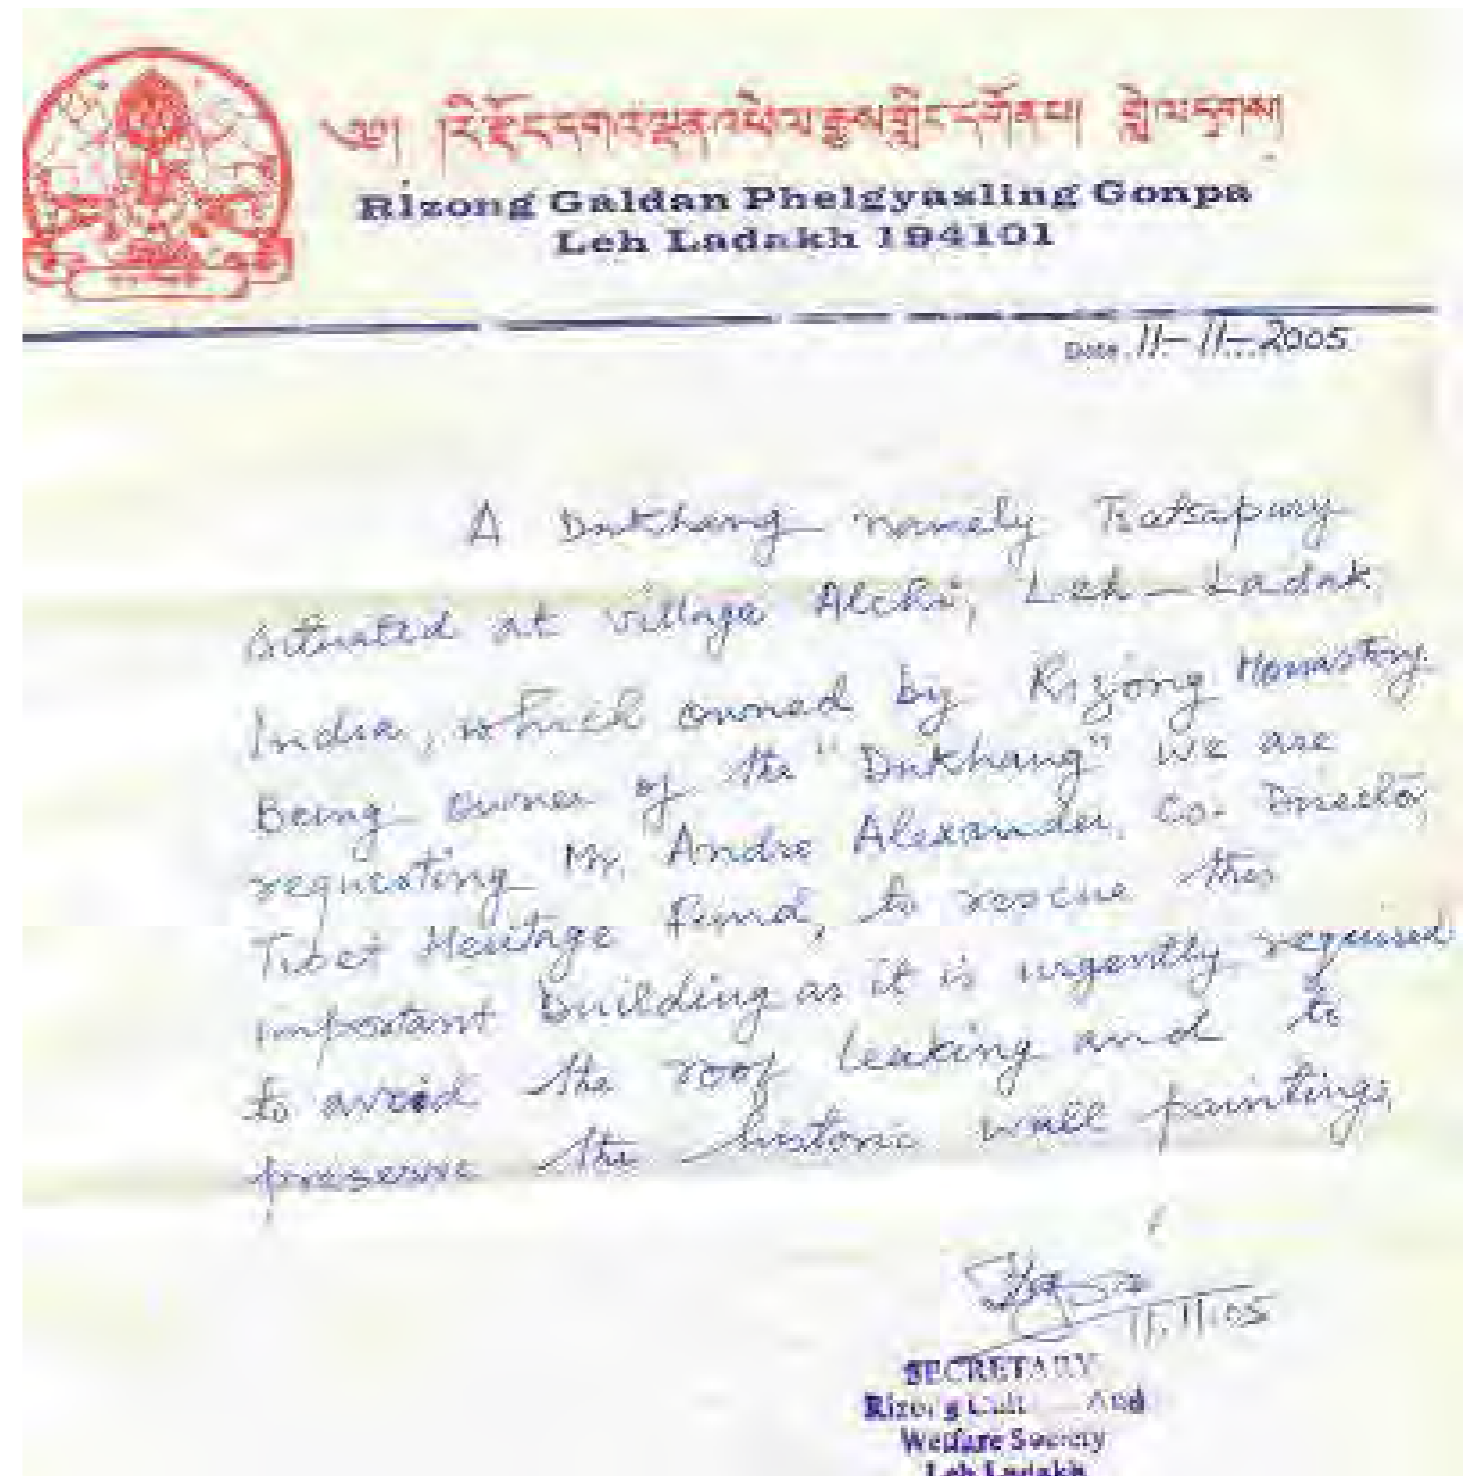 ༄༅། །རི་རྫོང་དགའ་ལྡན་འཕེལ་རྒྱས་གླིང་དགོན་པ། སླེ་ལ་དྭགས།
Rizong Galdan Phelgyasling Gonpa
Leh Ladakh 194101
Date 11-11-2005
A Dukhang namely Tsatsapury
situated at village Alchi, Leh-Ladak,
India, which owned by Rizong Monastery.
Being owner of the "Dukhang" we are
requesting Mr. Andre Alexander, Co-Director,
Tibet Heritage Fund, to rescue this
important building as it is urgently required
to avoid the roof leaking and to
preserve the historic wall paintings.
11/11/05
SECRETARY
Rizong And
Welfare Society
Leh Ladakh